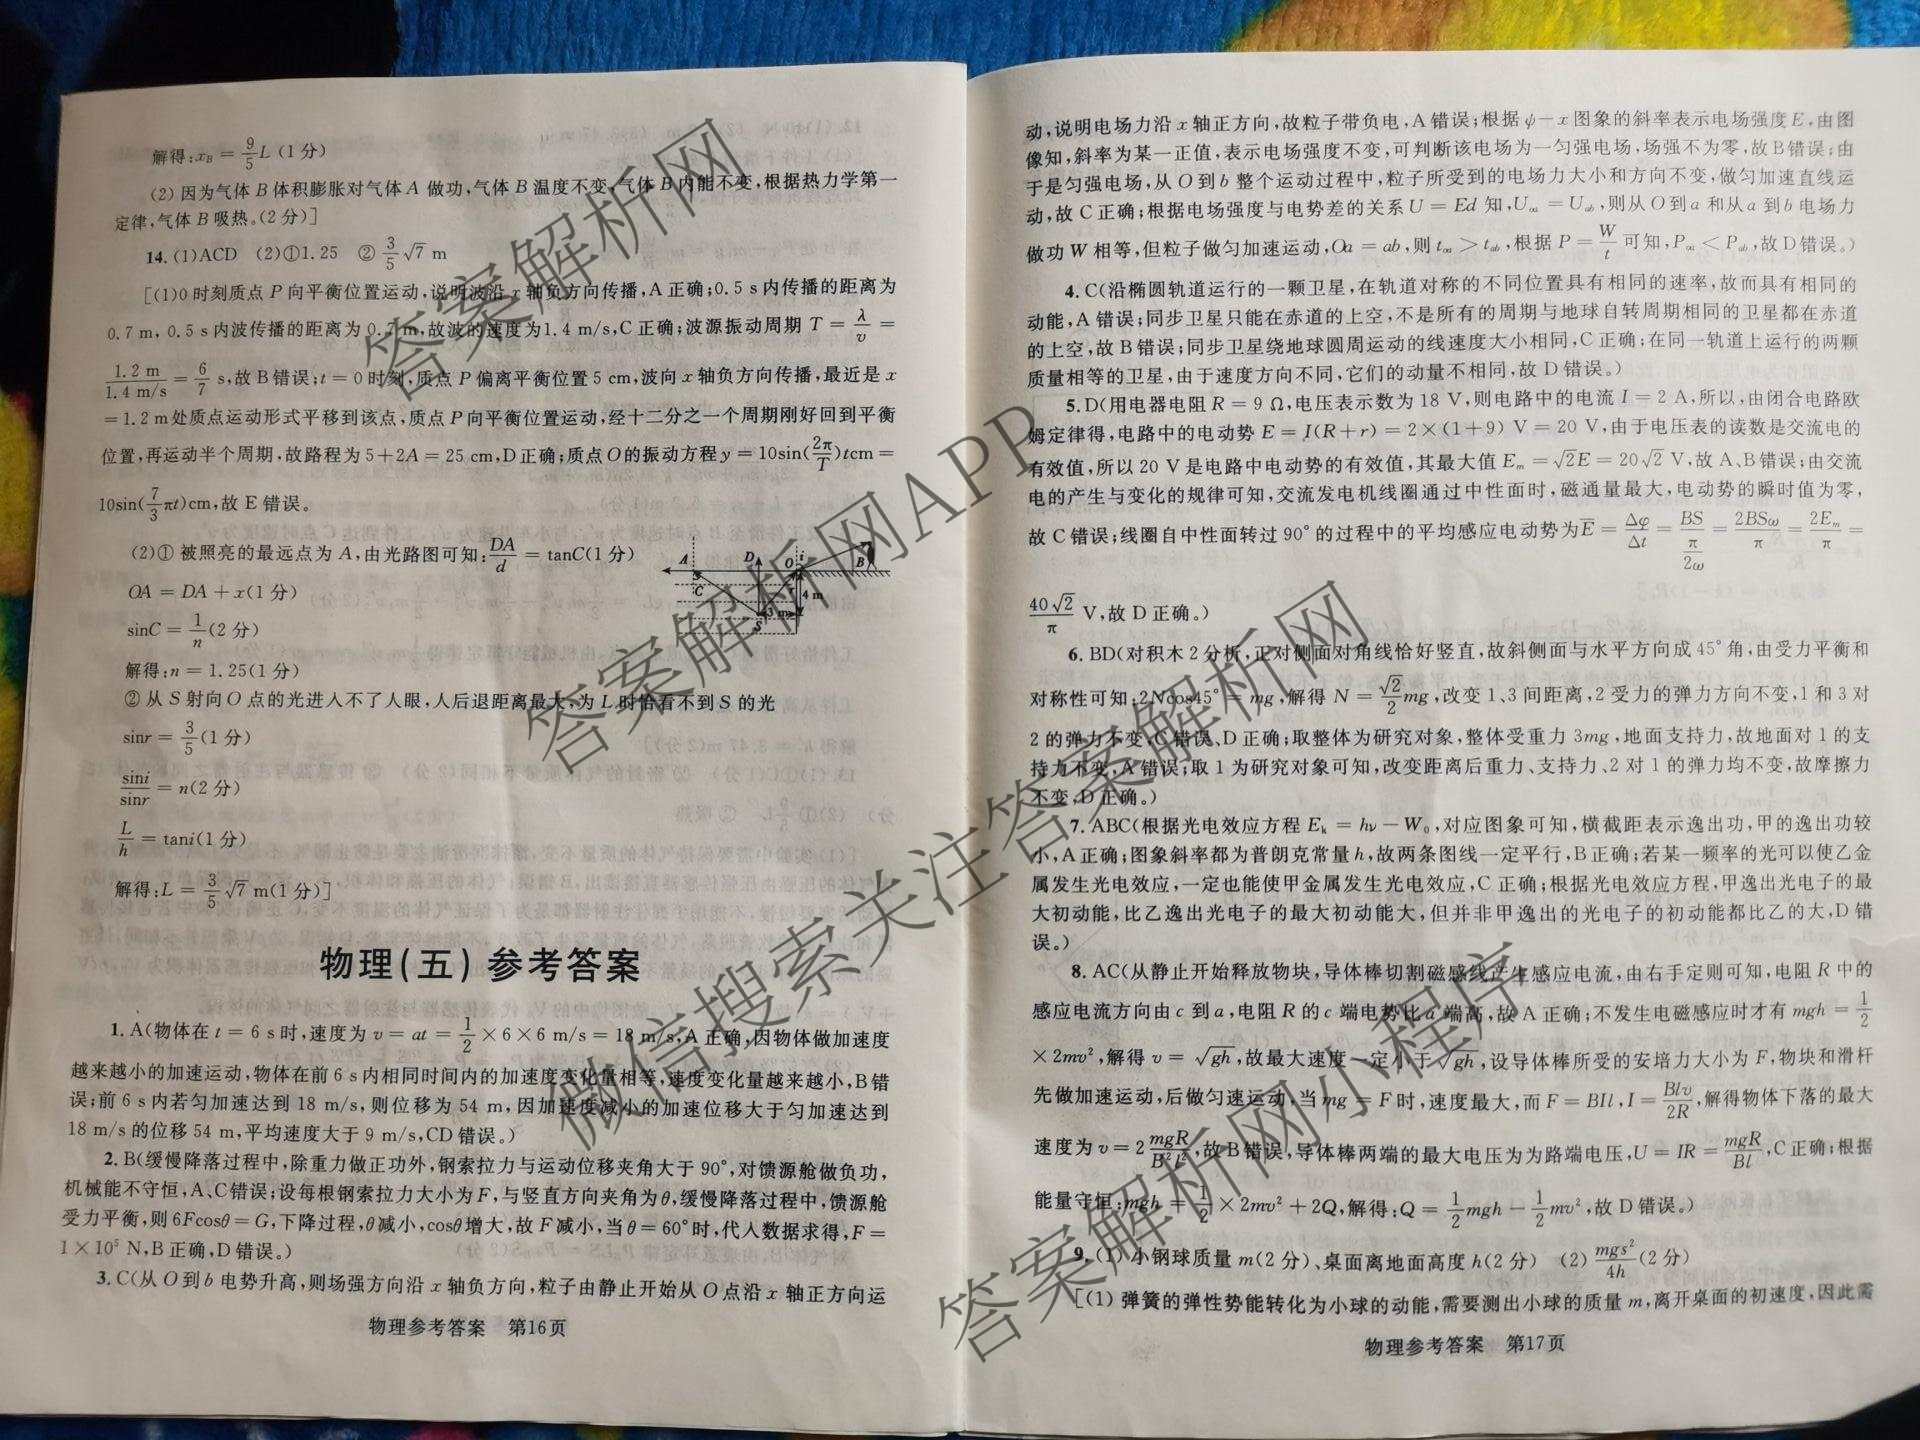 解得:x_B = 9/5 L (1分)
(2) 因为气体B体积膨胀对气体A做功,气体B温度不变,气体B内能不变,根据热力学第一
定律,气体B吸热。(2分)]
14. (1)ACD (2)①1.25 ② 3/5 √7 m
[(1)0时刻质点P向平衡位置运动,说明波沿x轴负方向传播,A正确;0.5 s内传播的距离为
0.7 m, 0.5 s内波传播的距离为0.7 m,故波的速度为1.4 m/s,C正确;波源振动周期 T = λ/v =
1.2 m/1.4 m/s = 6/7 s,故B错误;t=0时刻,质点P偏离平衡位置5 cm,波向x轴负方向传播,最近是x
=1.2 m处质点运动形式平移到该点,质点P向平衡位置运动,经十二分之一个周期刚好回到平衡
位置,再运动半个周期,故路程为5+2A=25 cm,D正确;质点O的振动方程y=10sin(2π/T)tcm=
10sin(7/3 πt)cm,故E错误。
(2)① 被照亮的最远点为A,由光路图可知: DA/d = tanC(1分)
OA = DA + x(1分)
sinC = 1/n (2分)
解得:n = 1.25(1分)
A D O i B
C 4 m
3 m
S
② 从S射向O点的光进入不了人眼,人后退距离最大,为L时恰看不到S的光
sinr = 3/5 (1分)
sini/sinr = n(2分)
L/h = tani(1分)
解得:L = 3/5 √7 m(1分)]
物理(五)参考答案
1. A(物体在 t = 6 s时,速度为 v = at = 1/2 × 6 × 6 m/s = 18 m/s,A正确,因物体做加速度
越来越小的加速运动,物体在前6 s内相同时间内的加速度变化量相等,速度变化量越来越小,B错
误;前6 s内若匀加速达到18 m/s,则位移为54 m,因加速度减小的加速位移大于匀加速达到
18 m/s的位移54 m,平均速度大于9 m/s,CD错误。)
2. B(缓慢降落过程中,除重力做正功外,钢索拉力与运动位移夹角大于90°,对馈源舱做负功,
机械能不守恒,A、C错误;设每根钢索拉力大小为F,与竖直方向夹角为θ,缓慢降落过程中,馈源舱
受力平衡,则6Fcosθ=G,下降过程,θ减小,cosθ增大,故F减小,当θ=60°时,代人数据求得,F=
1×10⁵ N,B正确,D错误。)
3. C(从O到b电势升高,则场强方向沿x轴负方向,粒子由静止开始从O点沿x轴正方向运
物理参考答案 第16页
动,说明电场力沿x轴正方向,故粒子带负电,A错误;根据φ-x图象的斜率表示电场强度E,由图
像知,斜率为某一正值,表示电场强度不变,可判断该电场为一匀强电场,场强不为零,故B错误;由
于是匀强电场,从O到b整个运动过程中,粒子所受到的电场力大小和方向不变,做匀加速直线运
动,故C正确;根据电场强度与电势差的关系U=Ed知,U_oa=U_ab,则从O到a和从a到b电场力
做功W相等,但粒子做匀加速运动,Oa=ab,则t_oa>t_ab,根据P=W/t可知,P_oa<P_ab,故D错误。)
4. C(沿椭圆轨道运行的一颗卫星,在轨道对称的不同位置具有相同的速率,故而具有相同的
动能,A错误;同步卫星只能在赤道的上空,不是所有的周期与地球自转周期相同的卫星都在赤道
的上空,故B错误;同步卫星绕地球圆周运动的线速度大小相同,C正确;在同一轨道上运行的两颗
质量相等的卫星,由于速度方向不同,它们的动量不相同,故D错误。)
5. D(用电器电阻R=9 Ω,电压表示数为18 V,则电路中的电流I=2 A,所以,由闭合电路欧
姆定律得,电路中的电动势E=I(R+r)=2×(1+9) V=20 V,由于电压表的读数是交流电的
有效值,所以20 V是电路中电动势的有效值,其最大值E_m=√2E=20√2 V,故A、B错误;由交流
电的产生与变化的规律可知,交流发电机线圈通过中性面时,磁通量最大,电动势的瞬时值为零,
故C错误;线圈自中性面转过90°的过程中的平均感应电动势为Ē = Δφ/Δt = BS/(π/2ω) = 2BSω/π = 2E_m/π =
40√2/π V,故D正确。)
6. BD(对积木2分析,正对侧面对角线恰好竖直,故斜侧面与水平方向成45°角,由受力平衡和
对称性可知:2Ncos45°=mg,解得N=√2/2 mg,改变1、3间距离,2受力的弹力方向不变,1和3对
2的弹力不变,C错误、D正确;取整体为研究对象,整体受重力3mg,地面支持力,故地面对1的支
持力不变,A错误;取1为研究对象可知,改变距离后重力、支持力、2对1的弹力均不变,故摩擦力
不变,D正确。)
7. ABC(根据光电效应方程E_k=hν-W_0,对应图象可知,横截距表示逸出功,甲的逸出功较
小,A正确;图象斜率都为普朗克常量h,故两条图线一定平行,B正确;若某一频率的光可以使乙金
属发生光电效应,一定也能使甲金属发生光电效应,C正确;根据光电效应方程,甲逸出光电子的最
大初动能,比乙逸出光电子的最大初动能大,但并非甲逸出的光电子的初动能都比乙的大,D错
误。)
8. AC(从静止开始释放物块,导体棒切割磁感线产生感应电流,由右手定则可知,电阻R中的
感应电流方向由c到a,电阻R的c端电势比a端高,故A正确;不发生电磁感应时才有mgh=1/2
×2mv²,解得v=√gh,故最大速度一定小于√gh,设导体棒所受的安培力大小为F,物块和滑杆
先做加速运动,后做匀速运动,当mg=F时,速度最大,而F=BIl,I=Blv/2R,解得物体下落的最大
速度为v=2 mgR/B²l²,故B错误,导体棒两端的最大电压为为路端电压,U=IR=mgR/Bl,C正确;根据
能量守恒:mgh=1/2×2mv²+2Q,解得:Q=1/2 mgh-1/2 mv²,故D错误。)
9. (1)小钢球质量m(2分)、桌面离地面高度h(2分) (2) mgs²/4h (2分)
[(1)弹簧的弹性势能转化为小球的动能,需要测出小球的质量m,离开桌面的初速度,因此需
物理参考答案 第17页
答案解析网
答案解析网APP
微信搜索关注答案解析网
答案解析网小程序